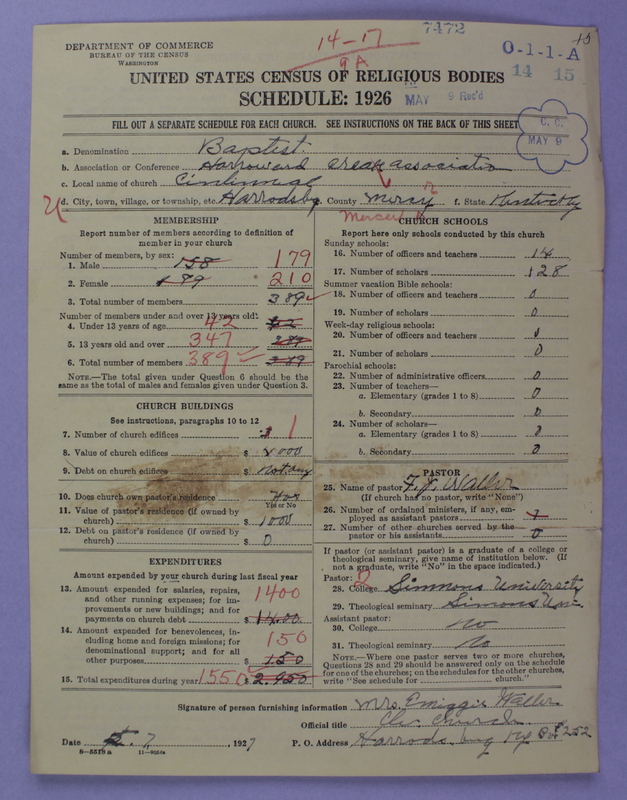 DEPARTMENT OF COMMERCE
BUREAU OF THE CENSUS
WASHINGTON
14-17
9A
7472
15
O-1-1-A
14 15
UNITED STATES CENSUS OF RELIGIOUS BODIES
SCHEDULE: 1926
MAY 9 Rec'd
FILL OUT A SEPARATE SCHEDULE FOR EACH CHURCH. SEE INSTRUCTIONS ON THE BACK OF THIS SHEET
C. C.
MAY 9
a. Denomination Baptist
b. Association or Conference creak association
c. Local name of church
d. City, town, village, or township, etc. Harrodsbg. e. County Mercy f. State Kentucky
Mercer
MEMBERSHIP
Report number of members according to definition of
member in your church
Number of members, by sex:
1. Male 158 179
2. Female 189 210
3. Total number of members 389
Number of members under and over 13 years old:
4. Under 13 years of age 42
5. 13 years old and over 347
6. Total number of members 389 389
NOTE.—The total given under Question 6 should be the
same as the total of males and females given under Question 3.
CHURCH BUILDINGS
See instructions, paragraphs 10 to 12
7. Number of church edifices 1
8. Value of church edifices $ 8000
9. Debt on church edifices $ nothing
10. Does church own pastor's residence
Yes or No
11. Value of pastor's residence (if owned by
church) $ 1000
12. Debt on pastor's residence (if owned by
church) $ 0
EXPENDITURES
Amount expended by your church during last fiscal year
13. Amount expended for salaries, repairs,
and other running expenses; for im-
provements or new buildings; and for
payments on church debt $ 1400
1400
14. Amount expended for benevolences, in-
cluding home and foreign missions; for
denominational support; and for all
other purposes $ 150
150
15. Total expenditures during year 1550 $
CHURCH SCHOOLS
Report here only schools conducted by this church
Sunday schools:
16. Number of officers and teachers 14
17. Number of scholars 128
Summer vacation Bible schools:
18. Number of officers and teachers 0
19. Number of scholars 0
Week-day religious schools:
20. Number of officers and teachers 0
21. Number of scholars 0
Parochial schools:
22. Number of administrative officers 0
23. Number of teachers—
a. Elementary (grades 1 to 8) 0
b. Secondary 0
24. Number of scholars—
a. Elementary (grades 1 to 8) 0
b. Secondary 0
PASTOR
25. Name of pastor Waller
(If church has no pastor, write "None")
26. Number of ordained ministers, if any, em-
ployed as assistant pastors
27. Number of other churches served by the
pastor or his assistants 0
If pastor (or assistant pastor) is a graduate of a college or
theological seminary, give name of institution below. (If
not a graduate, write "No" in the space indicated.)
Pastor: 2
28. College Simmons University
29. Theological seminary Simons Uni
Assistant pastor:
30. College no
31. Theological seminary No
NOTE.—Where one pastor serves two or more churches,
Questions 28 and 29 should be answered only on the schedule
for one of the churches; on the schedules for the other churches,
write "See schedule for church."
Signature of person furnishing information Mrs. Waller
Official title Church
Date 5. 7, 1927 P. O. Address Harrodsburg Ky 252
8—5518 a